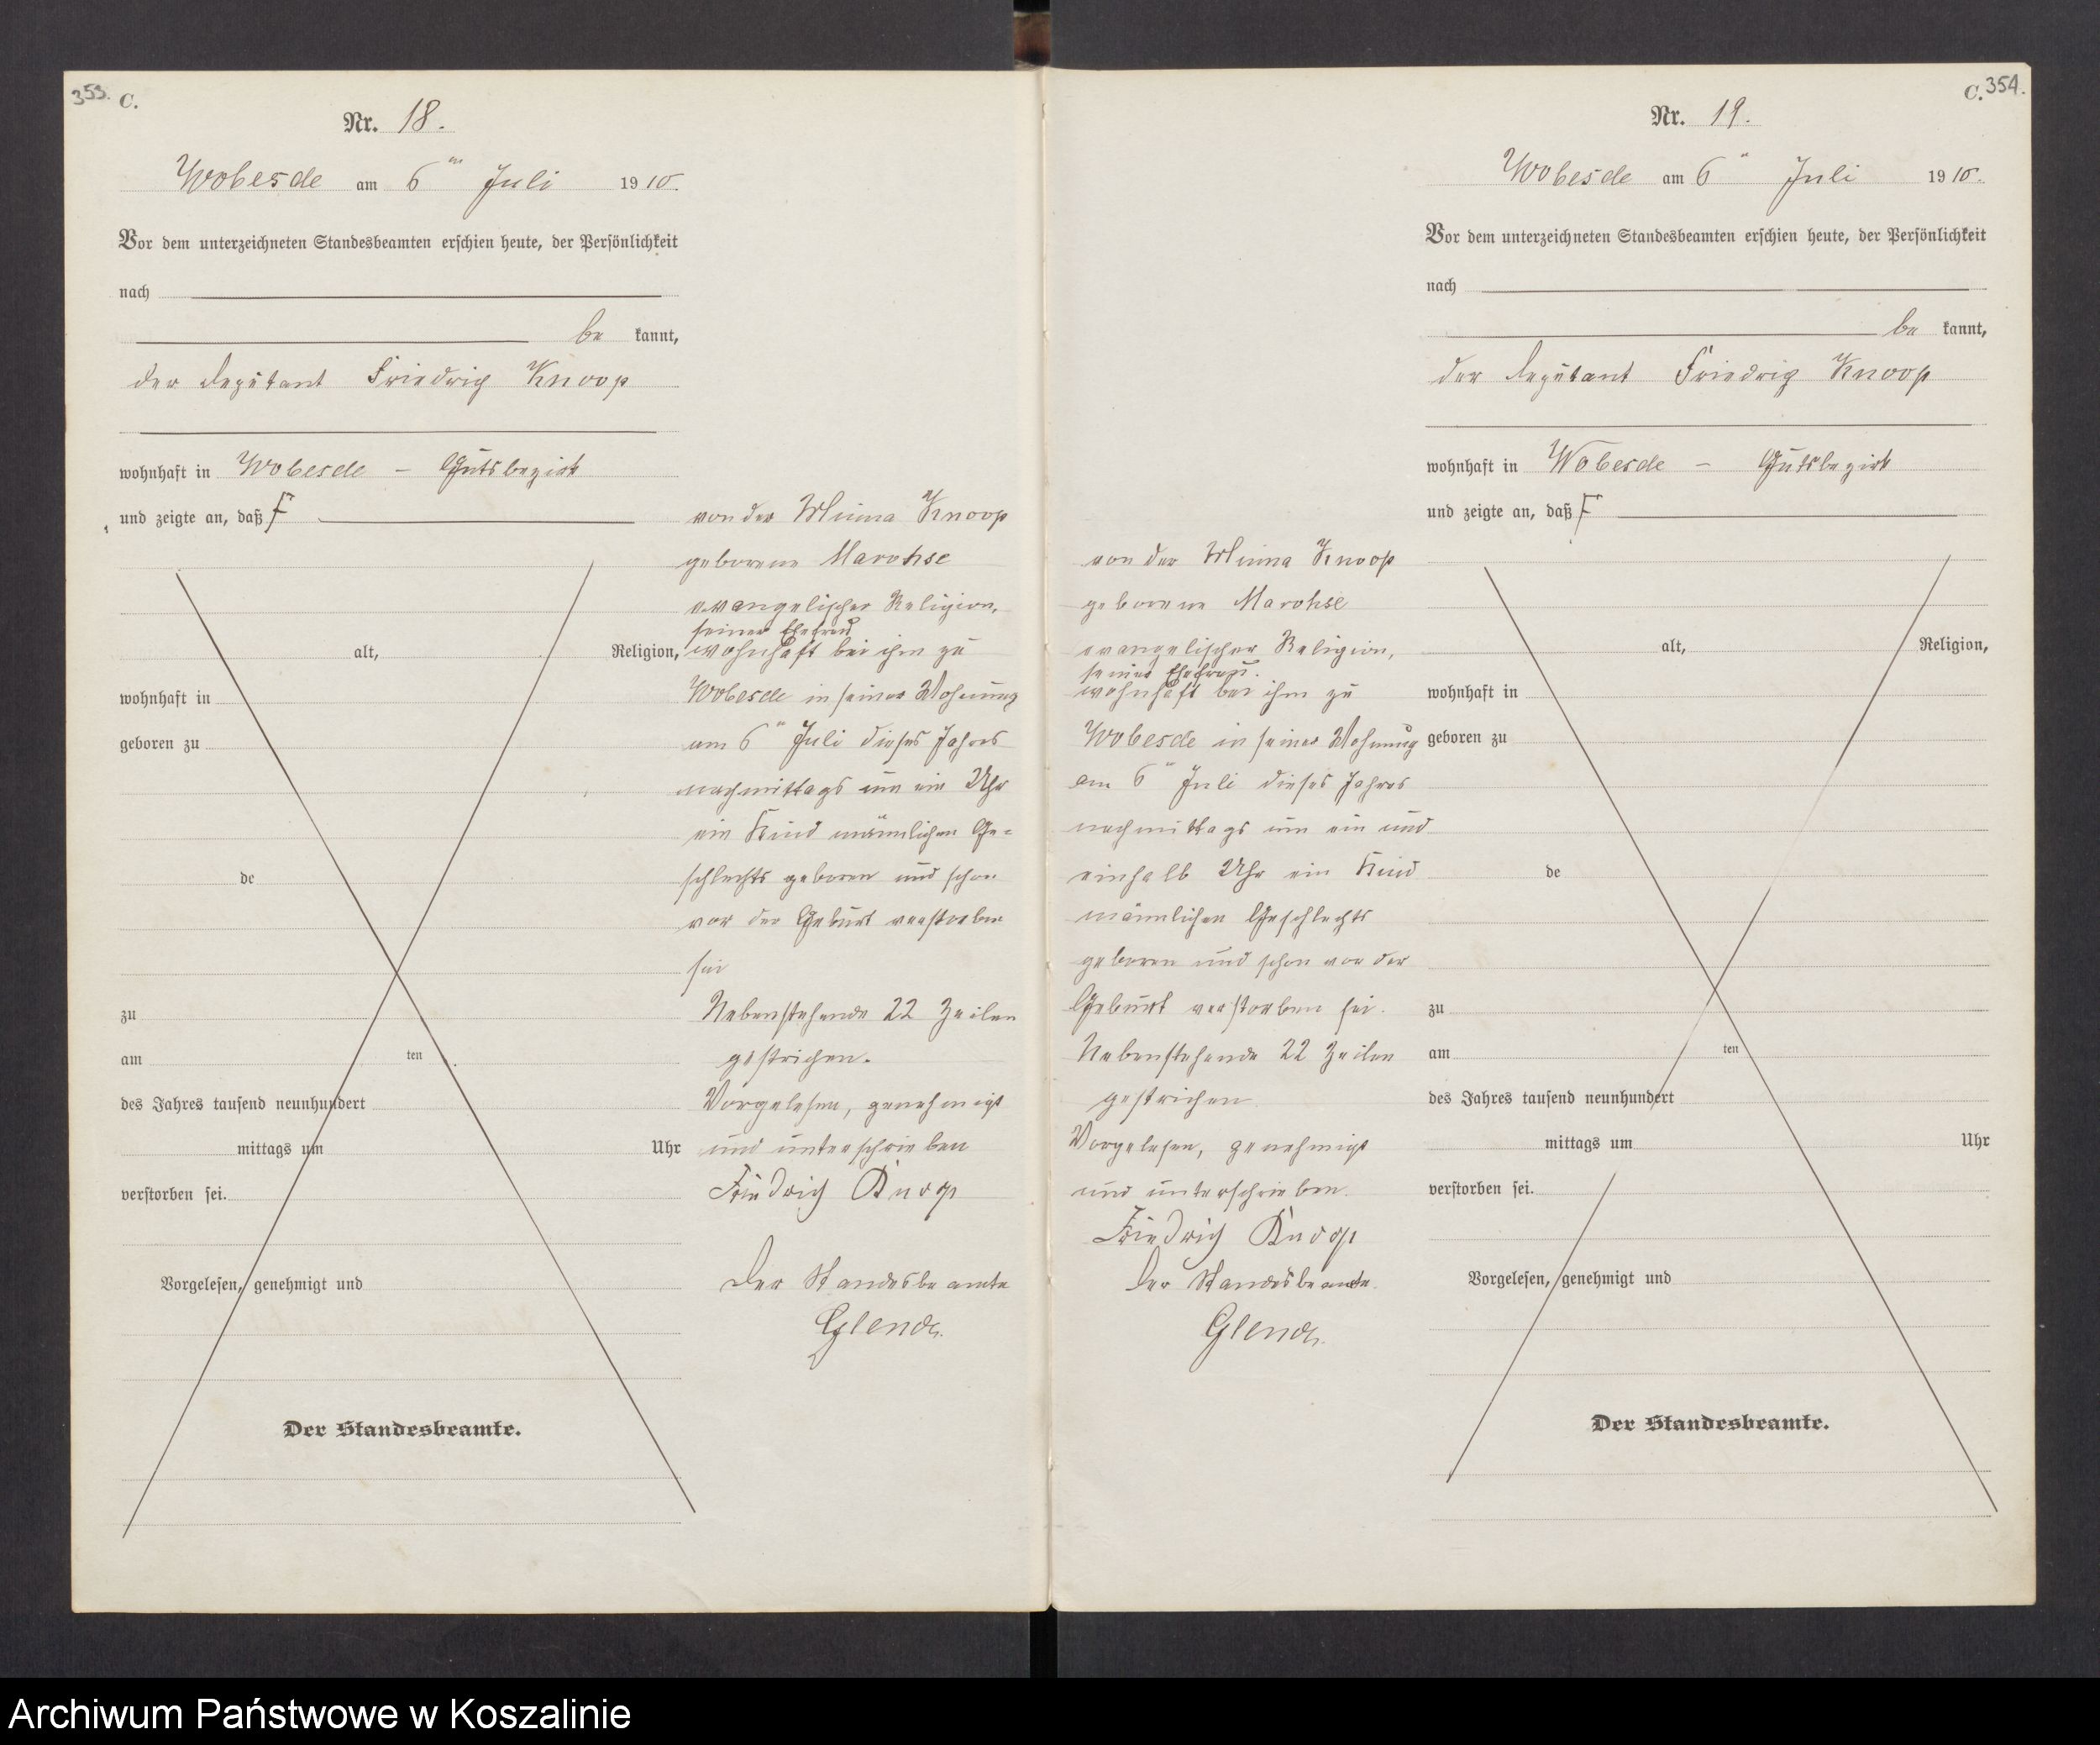 353. C.
Nr. 18.
Wobesde am 6ten Juli 1910.
Vor dem unterzeichneten Standesbeamten erschien heute, der Persönlichkeit
nach
be kannt,
der Deputant Friedrich Knoop
wohnhaft in Wobesde – Gutsbezirk
und zeigte an, daß F
alt, Religion,
wohnhaft in
geboren zu
de
zu
am ten
des Jahres tausend neunhundert
mittags um Uhr
verstorben sei.
Vorgelesen, genehmigt und
Der Standesbeamte.
von der Minna Knoop
geborene Marohse
evangelischer Religion,
seiner Ehefrau
wohnhaft bei ihm zu
Wobesde in seiner Wohnung
am 6ten Juli dieses Jahres
nachmittags um ein Uhr
ein Kind männlichen Ge=
schlechts geboren und schon
vor der Geburt verstorben
sei
Nebenstehende 22 Zeilen
gestrichen.
Vorgelesen, genehmigt
und unterschrieben
Friedrich Knop
Der Standesbeamte
C. 354.
Nr. 19.
Wobesde am 6 Juli 1910.
Vor dem unterzeichneten Standesbeamten erschien heute, der Persönlichkeit
nach
be kannt,
der Deputant Friedrich Knoop
wohnhaft in Wobesde – Gutsbezirk
und zeigte an, daß F
alt, Religion,
wohnhaft in
geboren zu
de
zu
am ten
des Jahres tausend neunhundert
mittags um Uhr
verstorben sei.
Vorgelesen, genehmigt und
Der Standesbeamte.
von der Minna Knoop
geborene Marohse
evangelischer Religion,
seiner Ehefrau.
wohnhaft bei ihm zu
Wobesde in seiner Wohnung
am 6 Juli dieses Jahres
nachmittags um ein und
einhalb Uhr ein Kind
männlichen Geschlechts
geboren und schon vor der
Geburt verstorben sei.
Nebenstehende 22 Zeilen
gestrichen
Vorgelesen, genehmigt
und unterschrieben.
Friedrich Knop
Der Standesbeamte.
Archiwum Państwowe w Koszalinie